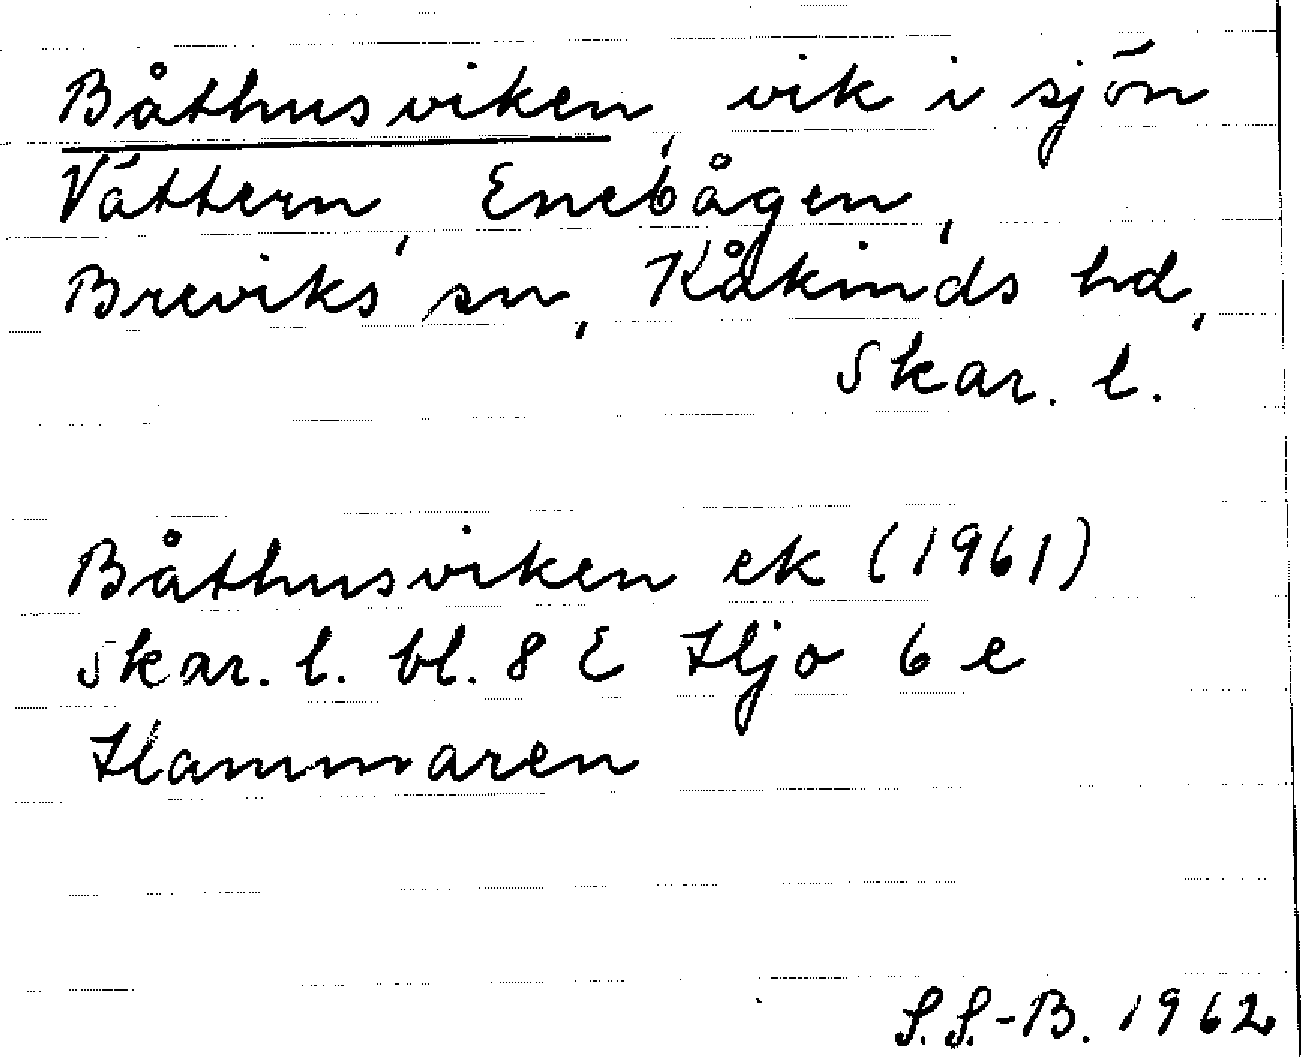 Båthusviken, vik i sjön
Vättern, Enebågen,
Breviks sn, Kåkinds hd,
Skar. l.
Båthusviken ek (1961)
Skar. l. bl. 8 E Hjo 6 e
Hammaren
S.S.-B. 1962